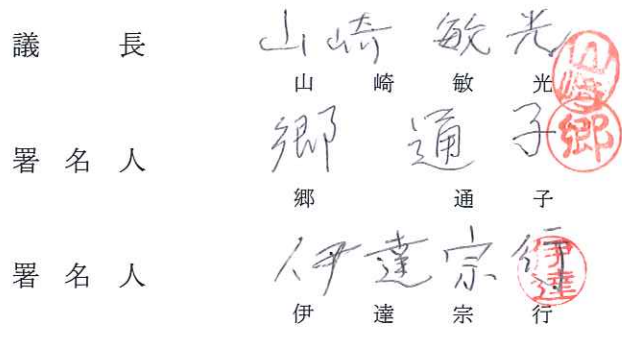 議長 山崎敏光 山崎
山崎敏光
署名人 郷通子 郷
郷通子
署名人 伊達宗行 伊達
伊達宗行